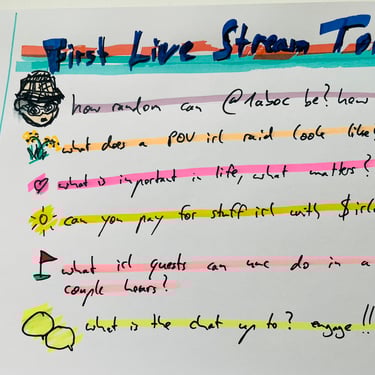 First Live Stream To
how random can @1aboc be? how
what does a POV irl raid look like?
what is important in life, what matters?
can you pay for stuff irl with $irl
what irl quests can we do in a
couple hours?
what is the chat up to? engage!!